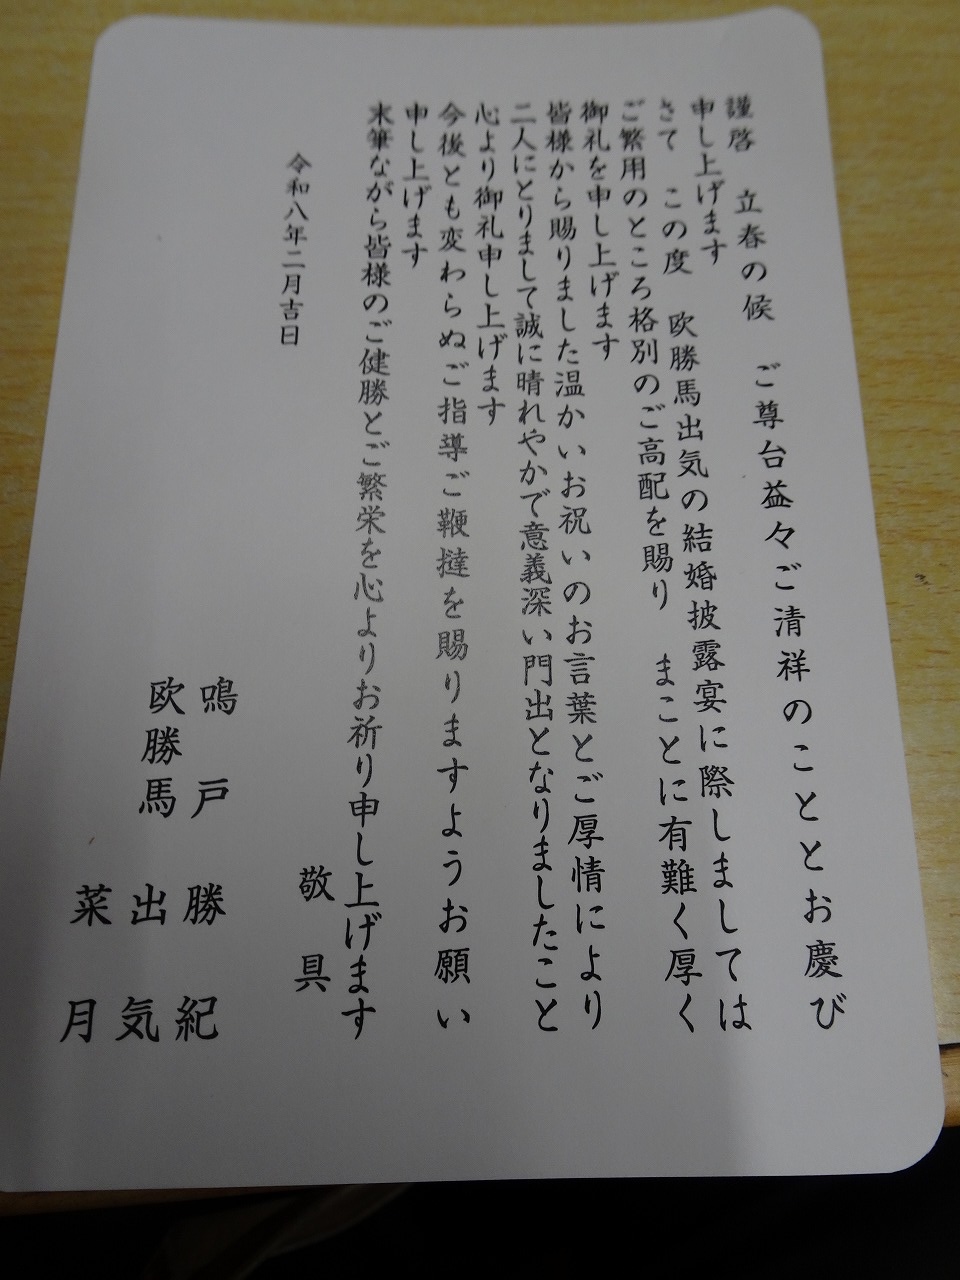 謹啓　立春の候　ご尊台益々ご清祥のこととお慶び
申し上げます
さて　この度　欧勝馬出気の結婚披露宴に際しましては
ご繁用のところ格別のご高配を賜り　まことに有難く厚く
御礼を申し上げます
皆様から賜りました温かいお祝いのお言葉とご厚情により
二人にとりまして誠に晴れやかで意義深い門出となりましたこと
心より御礼申し上げます
今後とも変わらぬご指導ご鞭撻を賜りますようお願い
申し上げます
末筆ながら皆様のご健勝とご繁栄を心よりお祈り申し上げます
敬具
令和八年二月吉日
鳴戸　勝紀
欧勝馬　出気
菜月